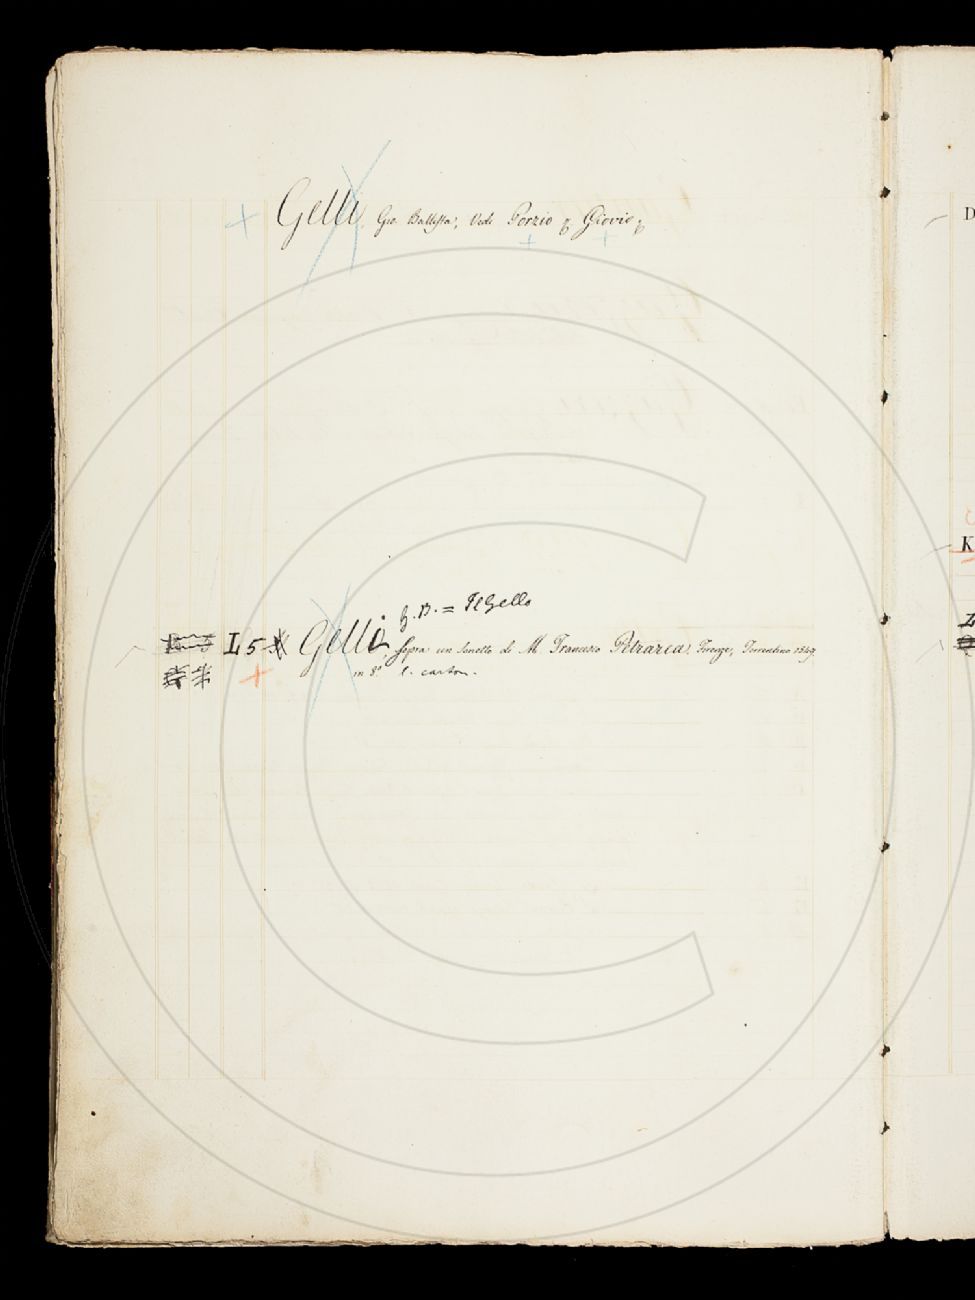 Gelli, Gio. Battista, Vedi Porzio e Giovio
G. B. = Il Gello
L 5 Gelli, Sopra un Sonetto di M. Francesco Petrarca, Firenze, Torrentino 1549
in 8.° l. carton.
D
K